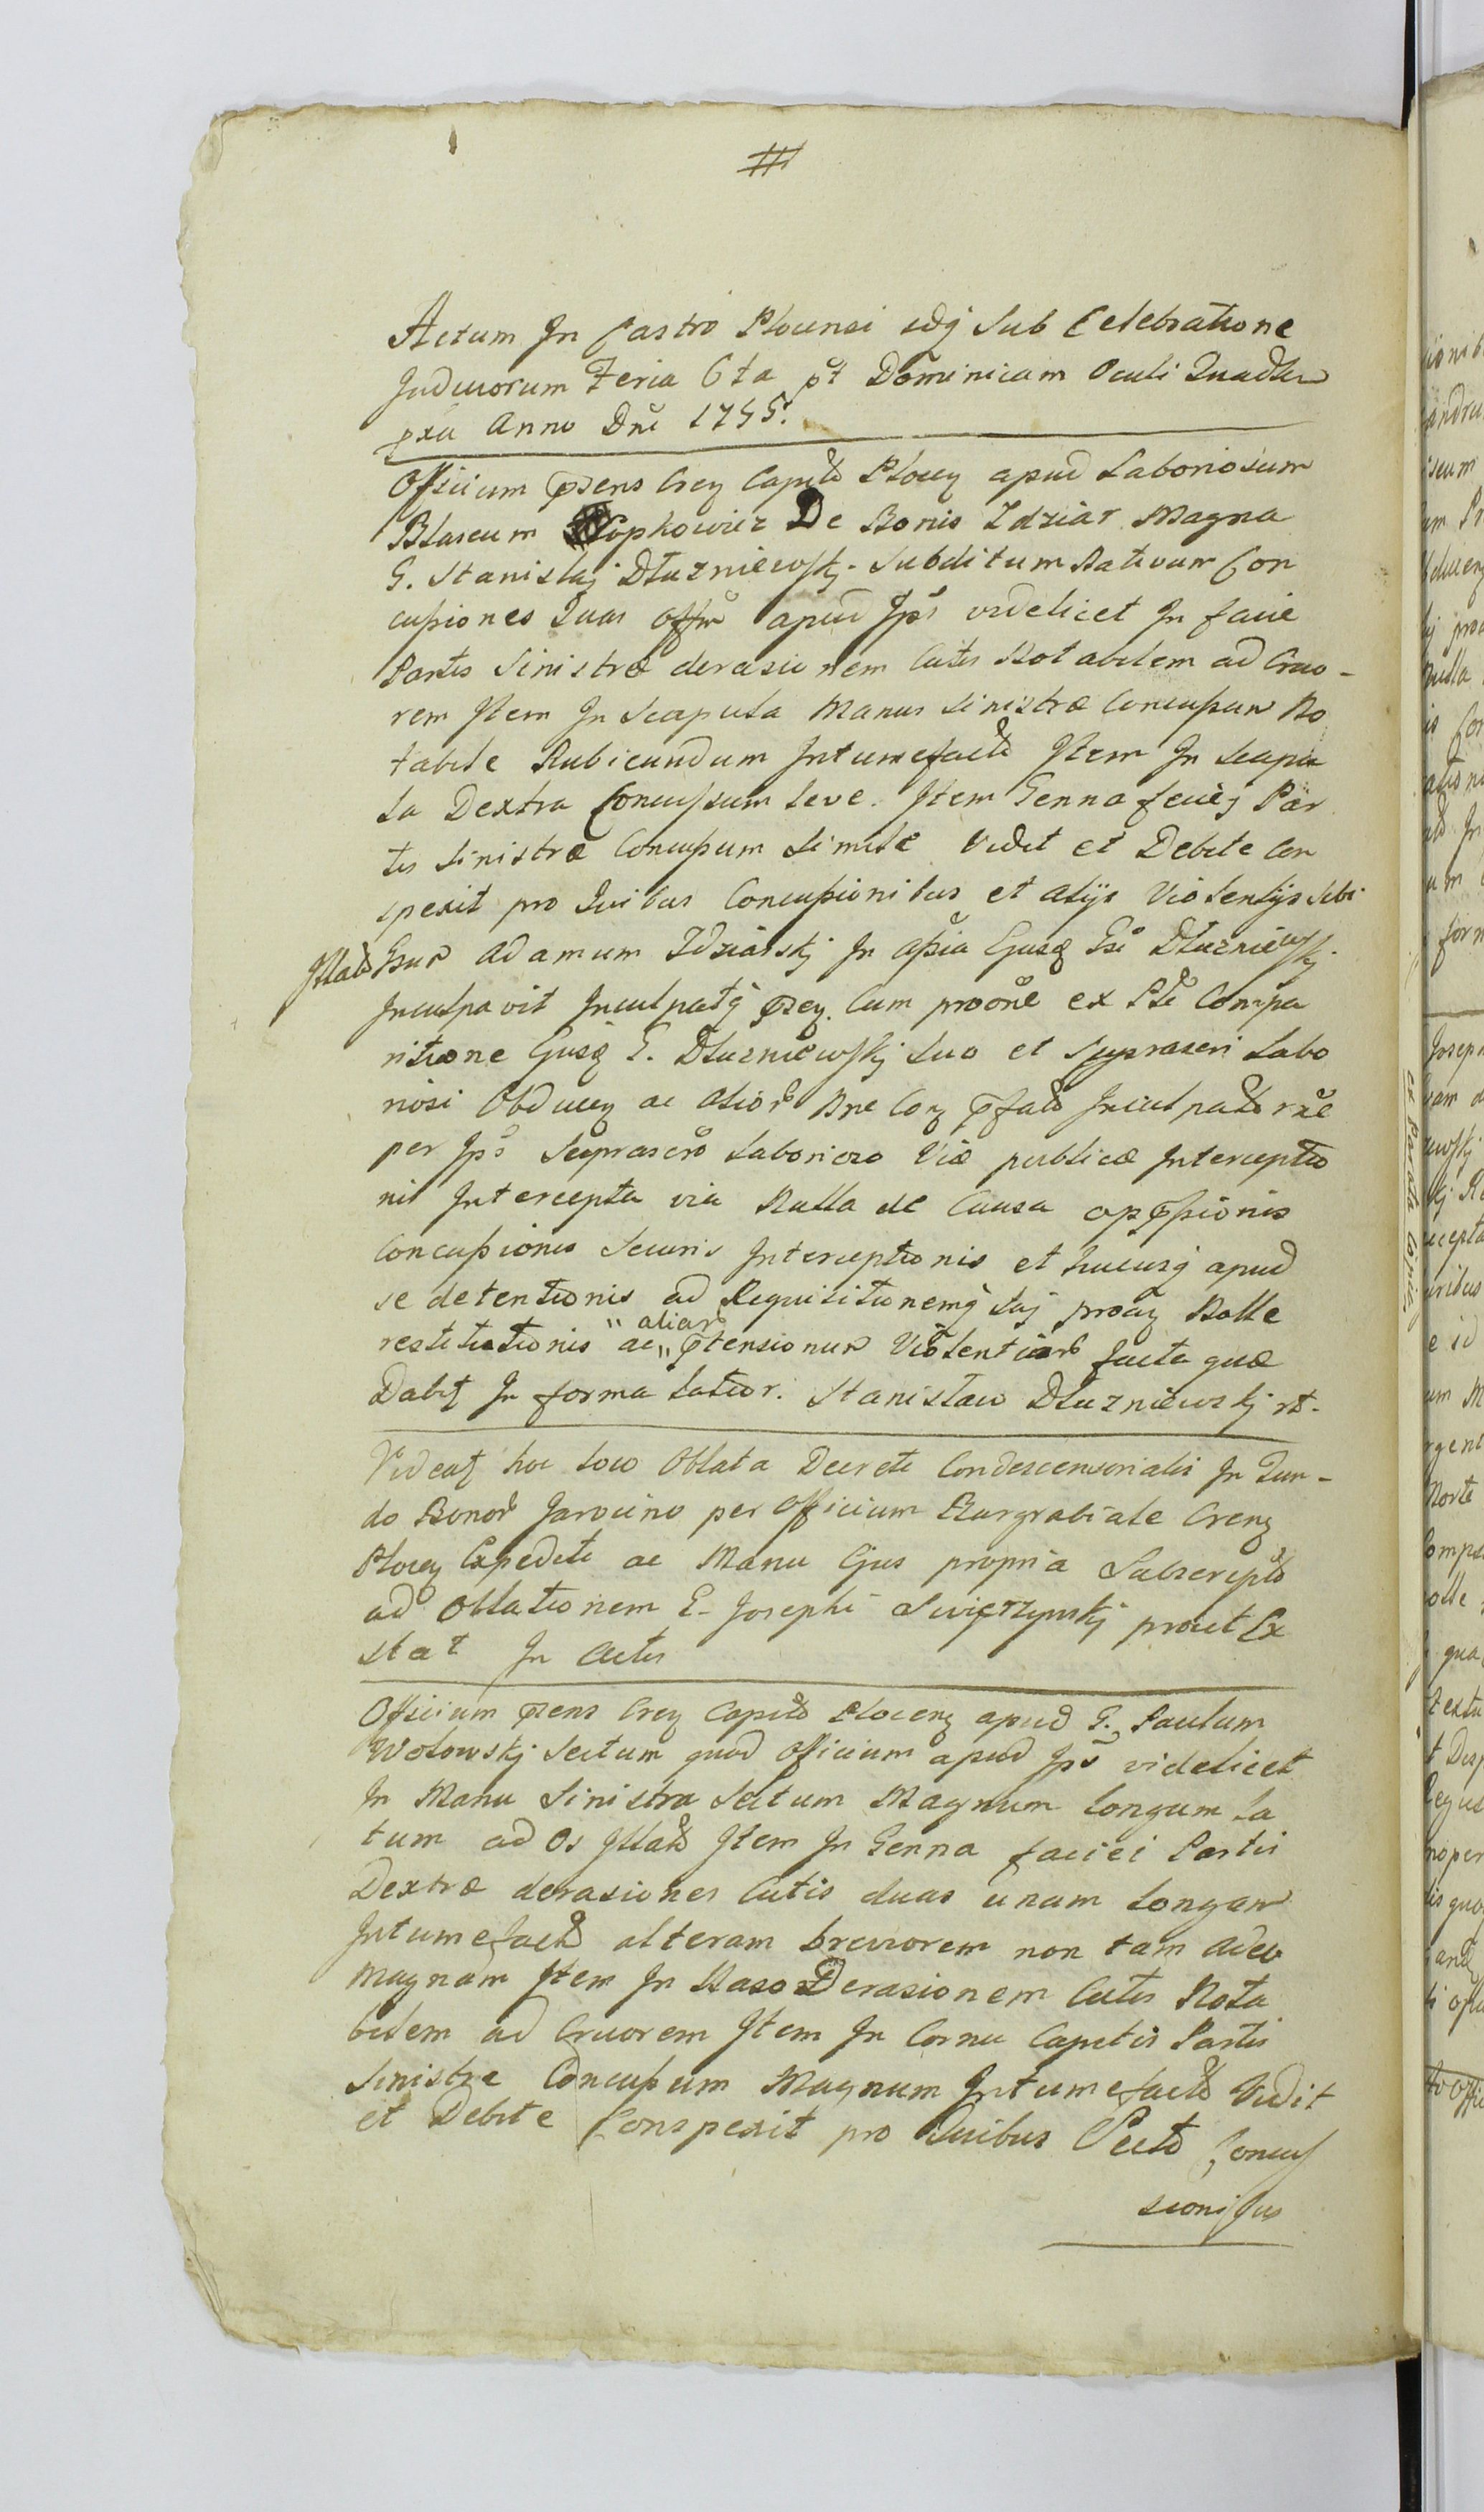 Actum In Castro Plocensi idq Sub Celebratione
Judiciorum Feria 6ta pt Dominicam Oculi Quadra
gxlem Anno Dni 1755.
Officium pnens Crey Capitle Plocey apud Laboriosum
Blaseum Kopkowicz De Bonis Idziar Magna
G. Stanislaj Dłuzniewskj Subditum Nativum Con
cussiones Quas offm apud Jps videlicet In facie
Partis Sinistræ derasionem Cutis Notabilem ad Cruo-
rem Item In Scapula Manus Sinistræ Concussum No
tabile Rubicundum Intumefactt Item In Scapu
la Dextra Concussum leve. Item Genna faciej Par
tis Sinistræ Concussum Simile Vidit et Debite Con
spexit pro Quibus Concussionibus et alijs Violentijs Sibi
Illatt Gsum Adamum Idziarskj In Assia Ejusq Gsi Dłuzniewskj
Inculpavit Inculpatq psey. Cum proone ex Pte Compa
ritione Ejusq G. Dłuzniewskj Suo et Suprascri Labo
riosi Obducey ac alior Nne Coq pfatt Inculpatt rne
per Jps Suprascro Laborioso Viæ publicæ Interceptio
nis Intercepta via Nulla de Causa oppssionis
Concussionis Securis Interceptionis et hucusq apud
se detentionis ad Requisitionemq Suj procq Nolle
restitutionis ac " aliar " ptensionum Violentiar facta quæ
Dabit In forma latior. Stanisław Dłuzniewskj rt.
Videat hoc loco Oblata Decreti Condescensorialis In Fun-
do Bonor Jarocino per Officium Burgrabiale Crenz
Plocey Expediti ac Manu Ejus propria Subscriptt
ad Oblationem G. Josephi Swięrzynskj prout Ex
stat In Actis
Officium pnens Crey Capitt Ploceng apud G. Paulum
Wołowskj Sectum quod Officium apud Jps videlicet
In Manu Sinistra Sectum Magnum longum la
tum ad Os Illatt Item In Genna faciei Partis
Dextræ derasiones Cutis duas unam longam
Intumefactt alteram breviorem non tam adeo
Magnam Item In Naso Derasionem Cutis Nota
bilem ad Cruorem Item In Cornu Capitis Partis
Sinistræ Concussum Magnum Intumefactt Vidit
et Debite Conspexit pro Quibus Sectt Concus
sionibus